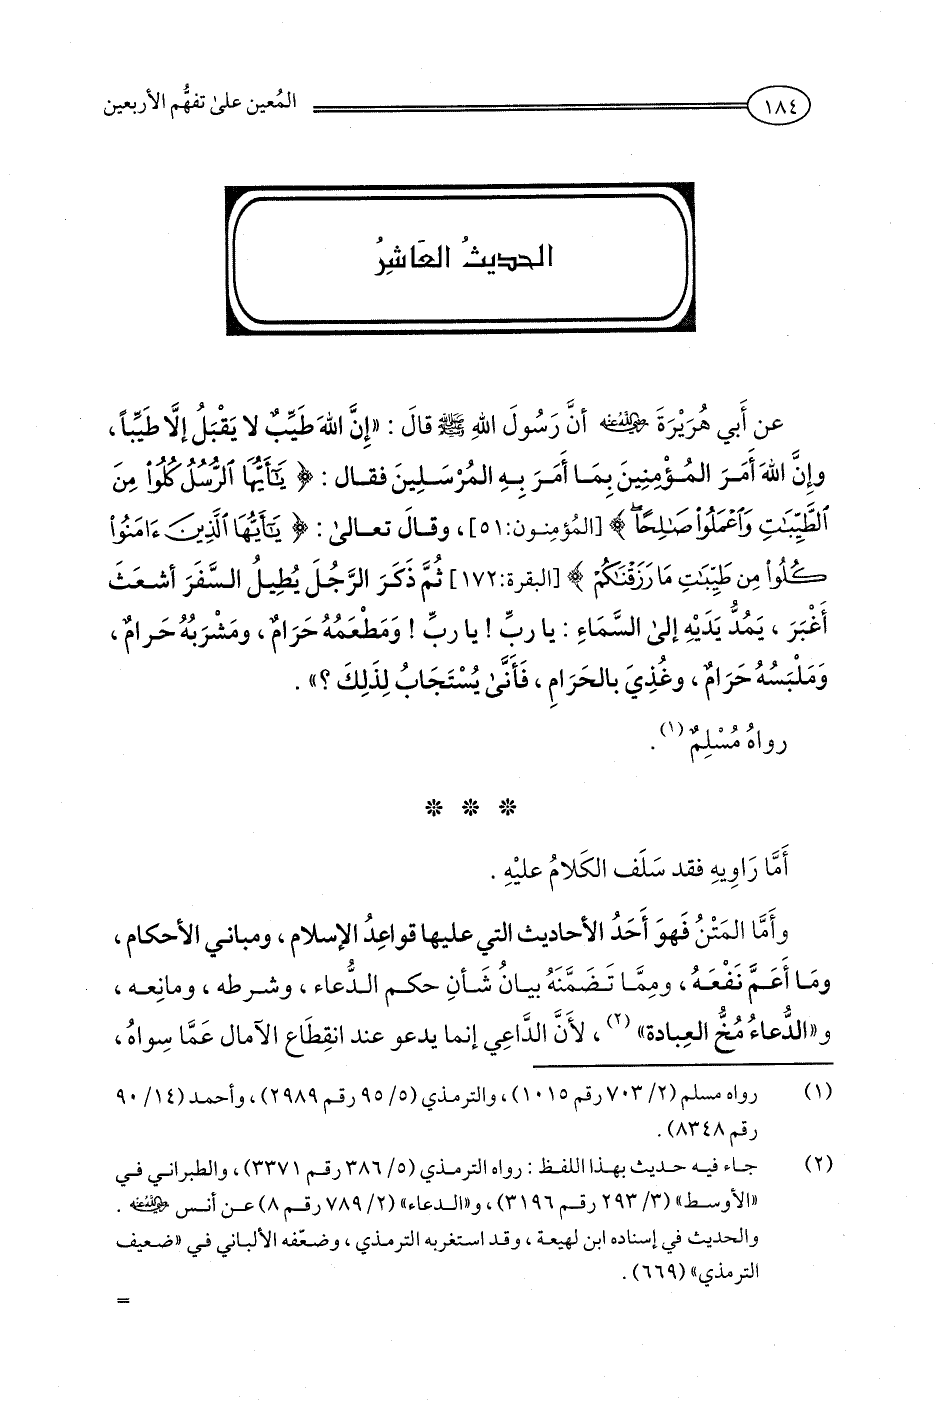 ١٨٤ المُعين على تفهُّم الأربعين
الحديثُ العَاشِرُ
عن أَبي هُرَيْرَةَ رضي الله عنه أنَّ رَسُولَ اللهِ ﷺ قالَ : «إِنَّ اللهَ طَيِّبٌ لا يَقْبَلُ إلَّا طَيِّباً ،
وإِنَّ اللهَ أَمَرَ المُؤْمِنِينَ بِمَا أَمَرَ بِهِ المُرْسَلِينَ فقال : ﴿ يَٰٓأَيُّهَا ٱلرُّسُلُ كُلُوا۟ مِنَ
ٱلطَّيِّبَٰتِ وَٱعْمَلُوا۟ صَٰلِحًاۖ ﴾ [المؤمنون:٥١] ، وقالَ تعالىٰ : ﴿ يَٰٓأَيُّهَا ٱلَّذِينَ ءَامَنُوا۟
كُلُوا۟ مِن طَيِّبَٰتِ مَا رَزَقْنَٰكُمْ ﴾ [البقرة:١٧٢] ثُمَّ ذَكَرَ الرَّجُلَ يُطِيلُ السَّفَرَ أشعَثَ
أَغْبَرَ ، يَمُدُّ يَدَيْهِ إلىٰ السَّمَاءِ : يا ربِّ ! يا ربِّ ! وَمَطْعَمُهُ حَرَامٌ ، ومَشْرَبُهُ حَرامٌ ،
وَمَلْبَسُهُ حَرَامٌ ، وغُذِيَ بالحَرَامِ ، فَأَنَّىٰ يُسْتَجَابُ لِذَلِكَ ؟» .
رواهُ مُسْلِمٌ (١) .
* * *
أَمَّا رَاوِيهِ فقد سَلَف الكَلامُ عليْهِ .
وأَمَّا المَتْنُ فَهوَ أَحَدُ الأحاديث التي عليها قواعِدُ الإسلام ، ومباني الأحكام ،
ومَا أَعَمَّ نَفْعَهُ ، ومِمَّا تَضَمَّنَهُ بيانُ شَأنِ حكم الدُّعاء ، وشرطه ، ومانعِه ،
و«الدُّعاءُ مُخُّ العِبادة» (٢) ، لأنَّ الدَّاعِي إنما يدعو عند انقِطَاع الآمال عَمَّا سِواهُ ،
(١) رواه مسلم (٢/ ٧٠٣ رقم ١٠١٥) ، والترمذي (٥/ ٩٥ رقم ٢٩٨٩) ، وأحمد (١٤/ ٩٠
رقم ٨٣٤٨) .
(٢) جاء فيه حديث بهذا اللفظ : رواه الترمذي (٥/ ٣٨٦ رقم ٣٣٧١) ، والطبراني في
«الأوسط» (٣/ ٢٩٣ رقم ٣١٩٦) ، و«الدعاء» (٢/ ٧٨٩ رقم ٨) عن أنس رضي الله عنه .
والحديث في إسناده ابن لهيعة ، وقد استغربه الترمذي ، وضعّفه الألباني في «ضعيف
الترمذي» (٦٦٩) .
=